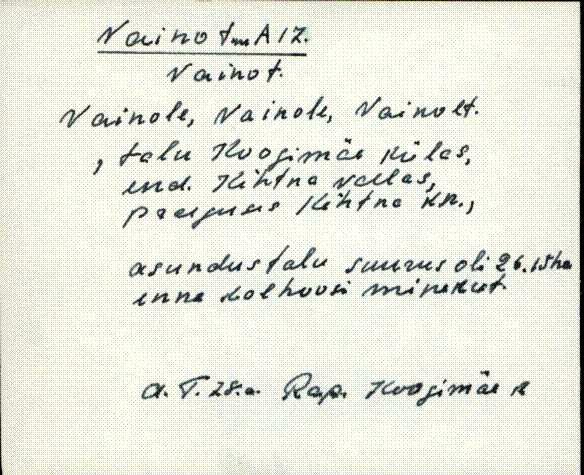 Vainot A 17.
Vainot.
Vainole, Vainole, Vainolt.
, talu Koogimäe külas,
end. Kehtna vallas,
praeguses Kehtna kn.,
asundustalu suurus oli 26.15 ha
enne kolhoosi minekut
A. T. 28.a. Rap. Koogimäe k